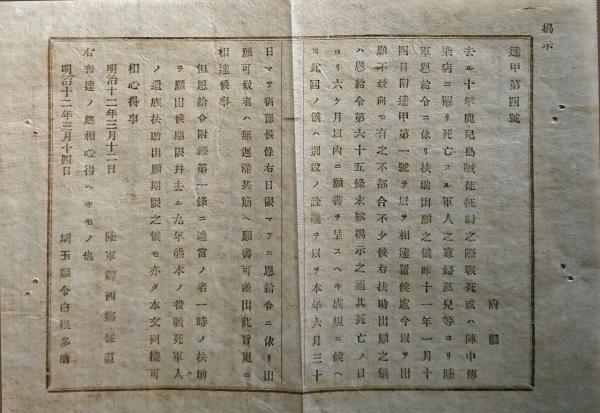 掲示
達甲第四號
府縣
去ル十年鹿兒島賊徒征討之際戰死或ハ陣中傳
染病ニ罹リ死亡スル軍人之寡婦孤兒等ヨリ陸
軍恩給令ニ依リ扶助出願之儀昨十一年一月十
四日附達甲第一號ヲ以テ相達置候處今以テ出
願不致向モ有之不都合不少候右扶助出願之儀
ハ恩給令第六十五條末項掲示之通其死亡ノ日
ヨリ六ヶ月以内ニ願書ヲ呈スヘキ成規ニ候ヘ
此回ノ儀ハ別段ノ詮議ヲ以テ本年六月三十
日マテ猶豫候條右日限マテニ恩給令ニ依リ出
願可致者ハ無遲滯其筋ヘ願書可差出此旨更ニ
相達候事
但恩給令附錄第一條ニ適當ノ者一時ノ扶助
ヲ願出候期限幷去ル九年熊本ノ役戰死軍人
ノ遺族扶助出願期限之儀モ亦タ本文同樣可
相心得事
明治十二年三月十二日
陸軍卿西鄉從道
右布達ノ趣相心得ヘキモノ也
明治十二年三月十四日
埼玉縣令白根多助